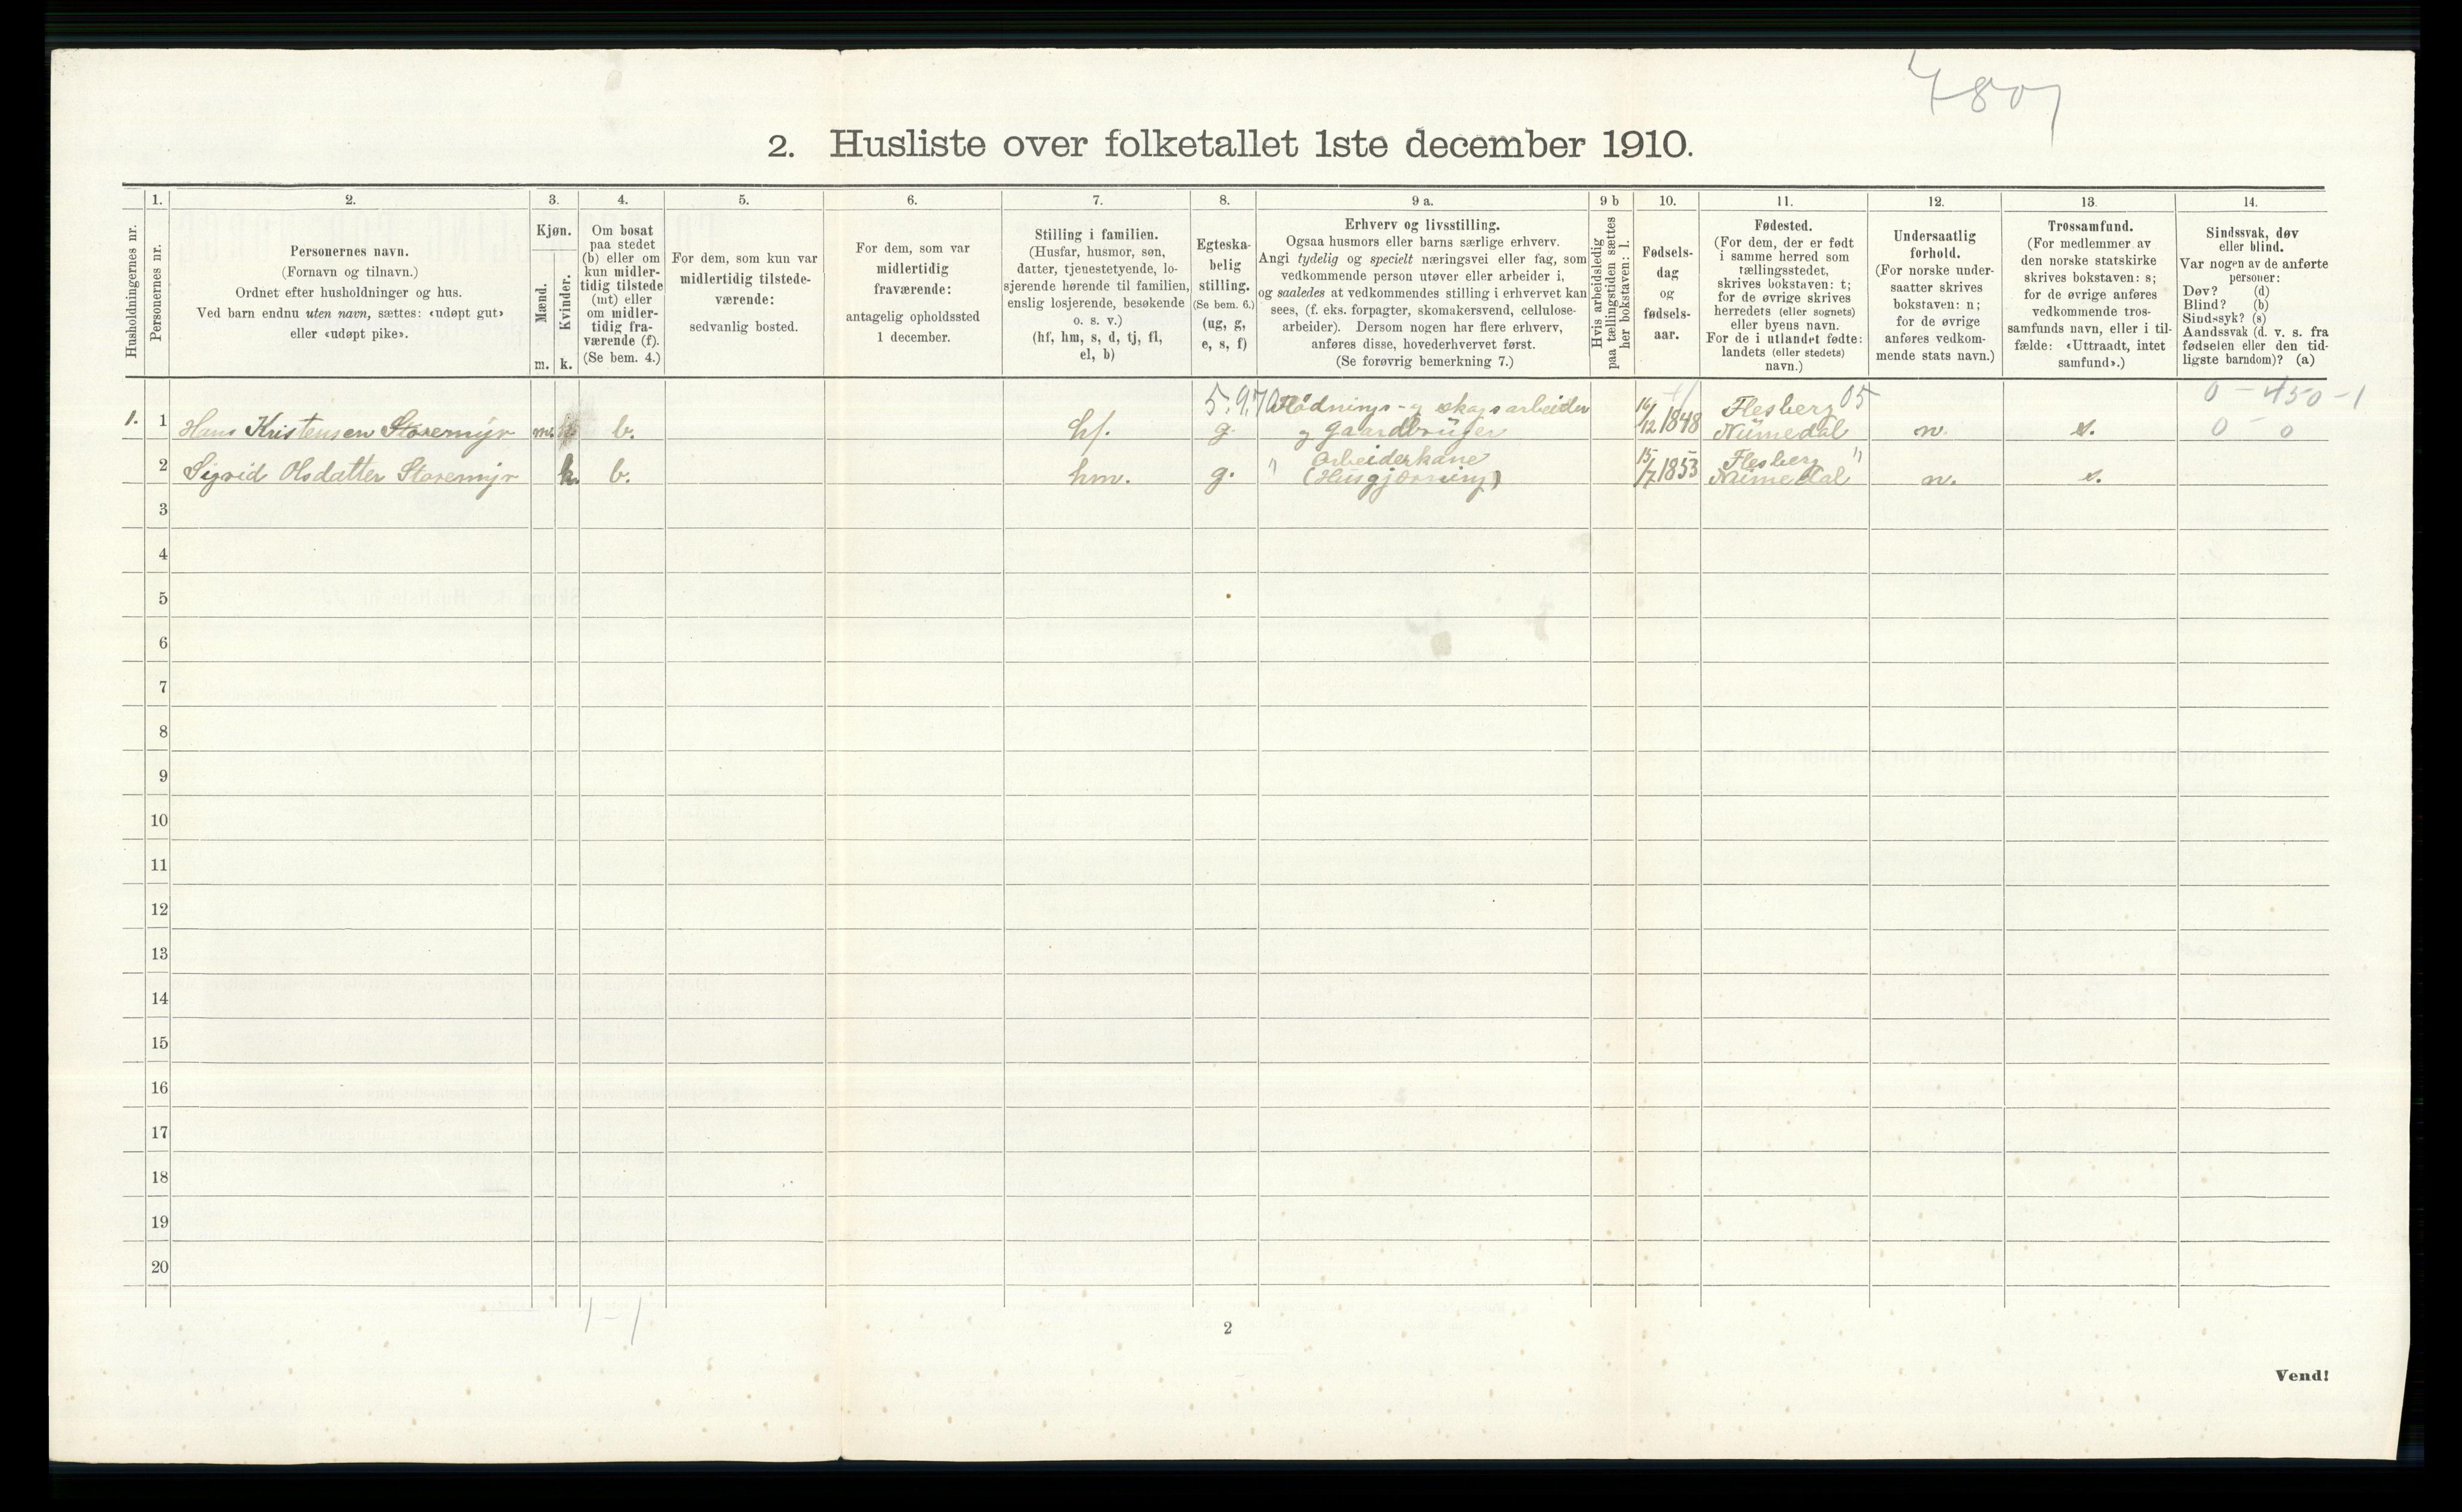 4807
2. Husliste over folketallet 1ste december 1910.
1. 2. 3. 4. 5. 6. 7. 8. 9 a. 9 b 10. 11. 12. 13. 14.
Husholdningernes nr.
Personernes nr.
Personernes navn.
(Fornavn og tilnavn.)
Ordnet efter husholdninger og hus.
Ved barn endnu uten navn, sættes: «udøpt gut»
eller «udøpt pike».
Kjøn.
Mænd.
Kvinder.
m. k.
Om bosat
paa stedet
(b) eller om
kun midler-
tidig tilstede
(mt) eller
om midler-
tidig fra-
værende (f).
(Se bem. 4.)
For dem, som kun var
midlertidig tilstede-
værende:
sedvanlig bosted.
For dem, som var
midlertidig
fraværende:
antagelig opholdssted
1 december.
Stilling i familien.
(Husfar, husmor, søn,
datter, tjenestetyende, lo-
sjerende hørende til familien,
enslig losjerende, besøkende
o. s. v.)
(hf, hm, s, d, tj, fl,
el, b)
Egteska-
belig
stilling.
(Se bem. 6.)
(ug, g,
e, s, f)
Erhverv og livsstilling.
Ogsaa husmors eller barns særlige erhverv.
Angi tydelig og specielt næringsvei eller fag, som
vedkommende person utøver eller arbeider i,
og saaledes at vedkommendes stilling i erhvervet kan
sees, (f. eks. forpagter, skomakersvend, cellulose-
arbeider). Dersom nogen har flere erhverv,
anføres disse, hovederhvervet først.
(Se forøvrig bemerkning 7.)
Hvis arbeidsledig
paa tællingstiden sættes
her bokstaven: l.
Fødsels-
dag
og
fødsels-
aar.
Fødested.
(For dem, der er født
i samme herred som
tællingsstedet,
skrives bokstaven: t;
for de øvrige skrives
herredets (eller sognets)
eller byens navn.
For de i utlandet fødte:
landets (eller stedets)
navn.)
Undersaatlig
forhold.
(For norske under-
saatter skrives
bokstaven: n;
for de øvrige
anføres vedkom-
mende stats navn.)
Trossamfund.
(For medlemmer av
den norske statskirke
skrives bokstaven: s;
for de øvrige anføres
vedkommende tros-
samfunds navn, eller i til-
fælde: «Uttraadt, intet
samfund».)
Sindssvak, døv
eller blind.
Var nogen av de anførte
personer:
Døv? (d)
Blind? (b)
Sindssyk? (s)
Aandssvak (d. v. s. fra
fødselen eller den tid-
ligste barndom)? (a)
5.9.70 skogsarbeider 16/ Flesberg 05 0 - 450 - 1
1. 1 Hans Kristensen Storemyr m. b. hf. g. gaardbruger 12 1848 Numedal n. s. 0 - 0
Arbeiderkone 15/ Flesberg "
2 Sigrid Olsdatter Storemyr k. b. hm. g. " (Husgjerning) 7 1853 Numedal n. s.
3
4
5
6
7
8
9
10
11
12
13
14
15
16
17
18
19
20
1 - 1
2
Vend!